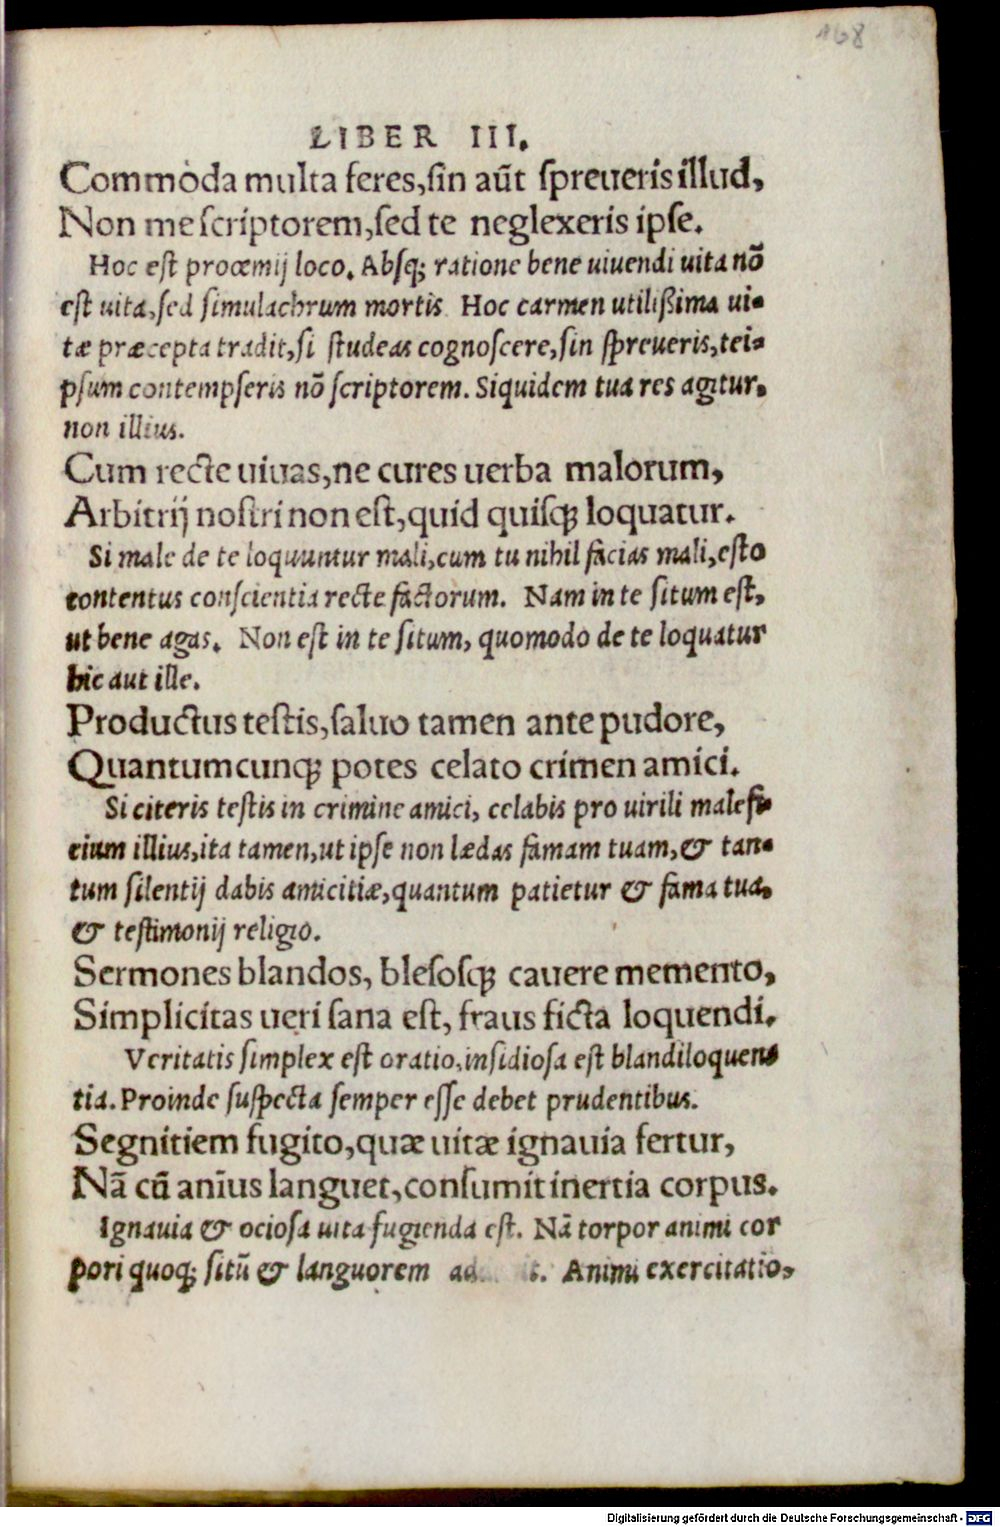 168
LIBER III.
Commoda multa feres, sin aūt spreueris illud,
Non me scriptorem, sed te neglexeris ipse.
Hoc est proœmij loco. Absq; ratione bene uiuendi uita nõ
est uita, sed simulachrum mortis Hoc carmen utilißima ui-
tæ præcepta tradit, si studeas cognoscere, sin spreueris, tei-
psum contempseris nõ scriptorem. Siquidem tua res agitur.
non illius.
Cum recte uiuas, ne cures uerba malorum,
Arbitrij nostri non est, quid quisq; loquatur.
Si male de te loquuntur mali, cum tu nihil facias mali, esto
contentus conscientia recte factorum. Nam in te situm est,
ut bene agas. Non est in te situm, quomodo de te loquatur
hic aut ille.
Productus testis, saluo tamen ante pudore,
Quantumcunq; potes celato crimen amici.
Si citeris testis in crimine amici, celabis pro uirili malefi-
cium illius, ita tamen, ut ipse non lædas famam tuam, & tan-
tum silentij dabis amicitiæ, quantum patietur & fama tua.
& testimonij religio.
Sermones blandos, blesosq; cauere memento,
Simplicitas ueri sana est, fraus ficta loquendi.
Veritatis simplex est oratio, insidiosa est blandiloquen-
tia. Proinde suspecta semper esse debet prudentibus.
Segnitiem fugito, quæ uitæ ignauia fertur,
Nã cū anīus languet, consumit inertia corpus.
Ignauia & ociosa uita fugienda est. Nã torpor animi cor
pori quoq; sitū & languorem Animi exercitatio,
Digitalisierung gefördert durch die Deutsche Forschungsgemeinschaft - DFG